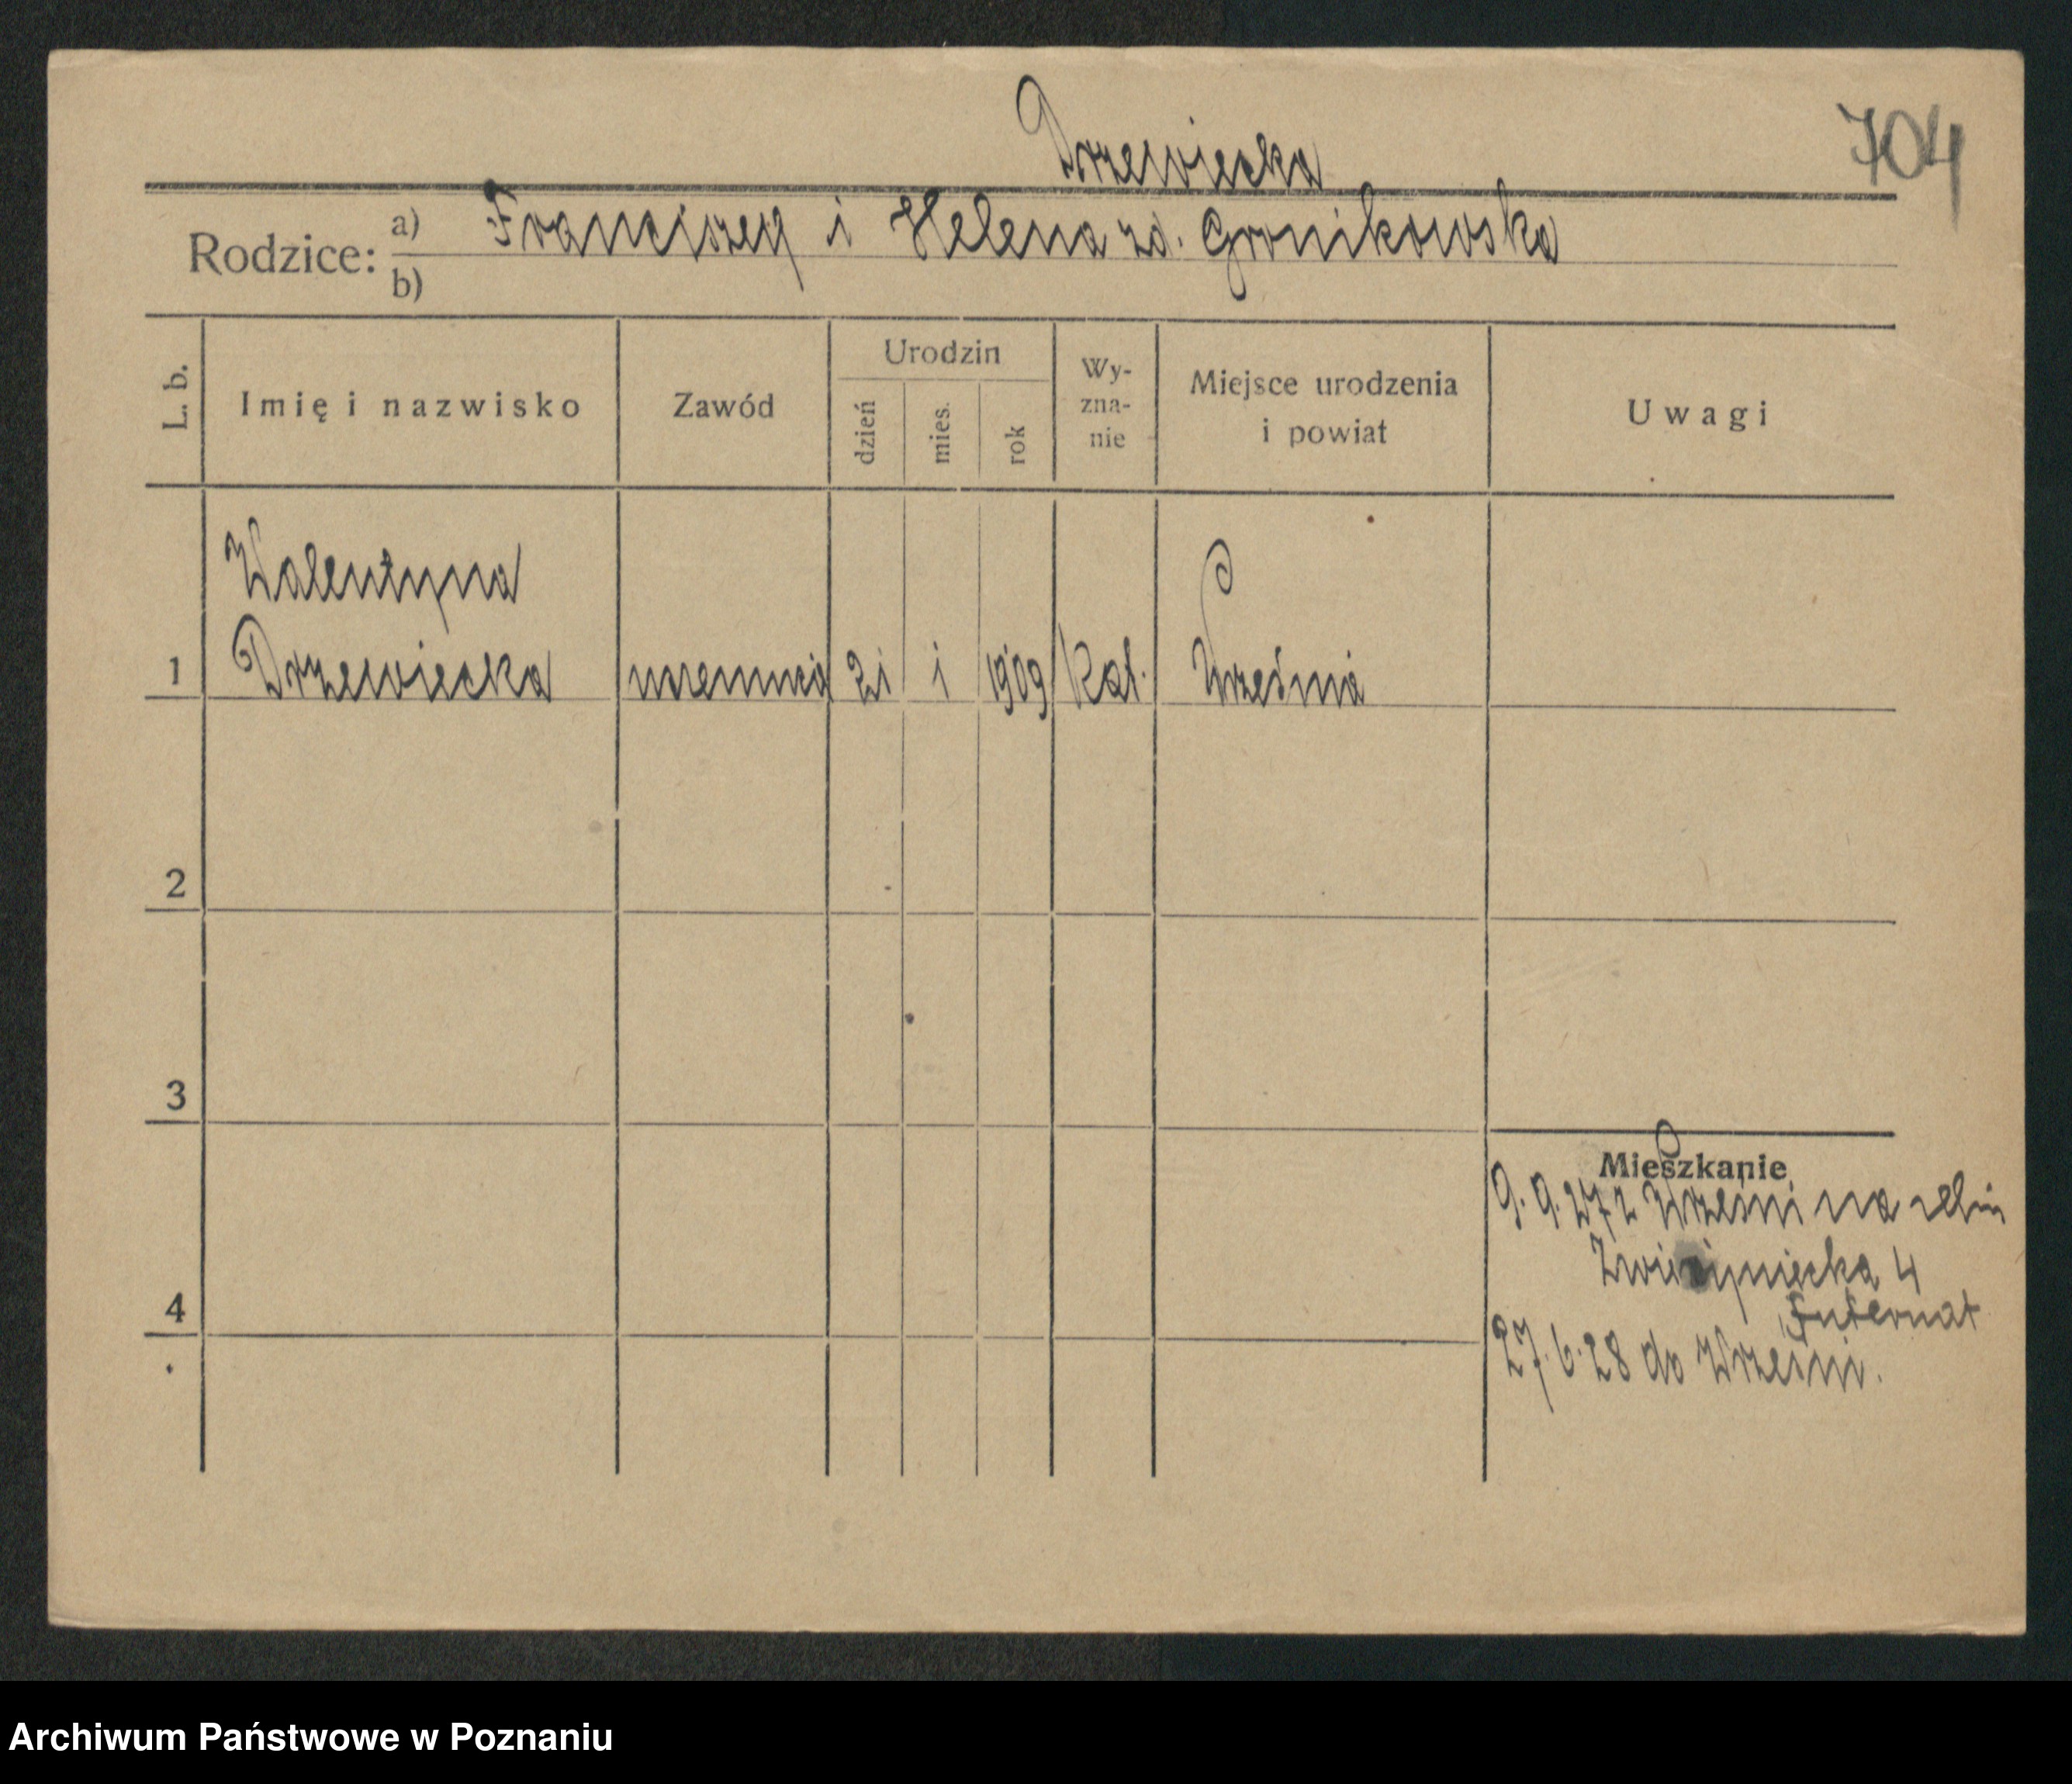 Drzewiecka
704
Rodzice: a) Franciszek i Helena zd. Gronikowska
b)
L. b.
Imię i nazwisko
Zawód
Urodzin
dzień
mies.
rok
Wy-
zna-
nie
Miejsce urodzenia
i powiat
Uwagi
Walentyna
1 Drzewiecka uczennica 21 1 1909 kat. Września
2
3
Mieszkanie
9.9.27 z Wrześni na
Zwierzyniecka 4
Internat
4
27.6.28 do Wrześni.
Archiwum Państwowe w Poznaniu